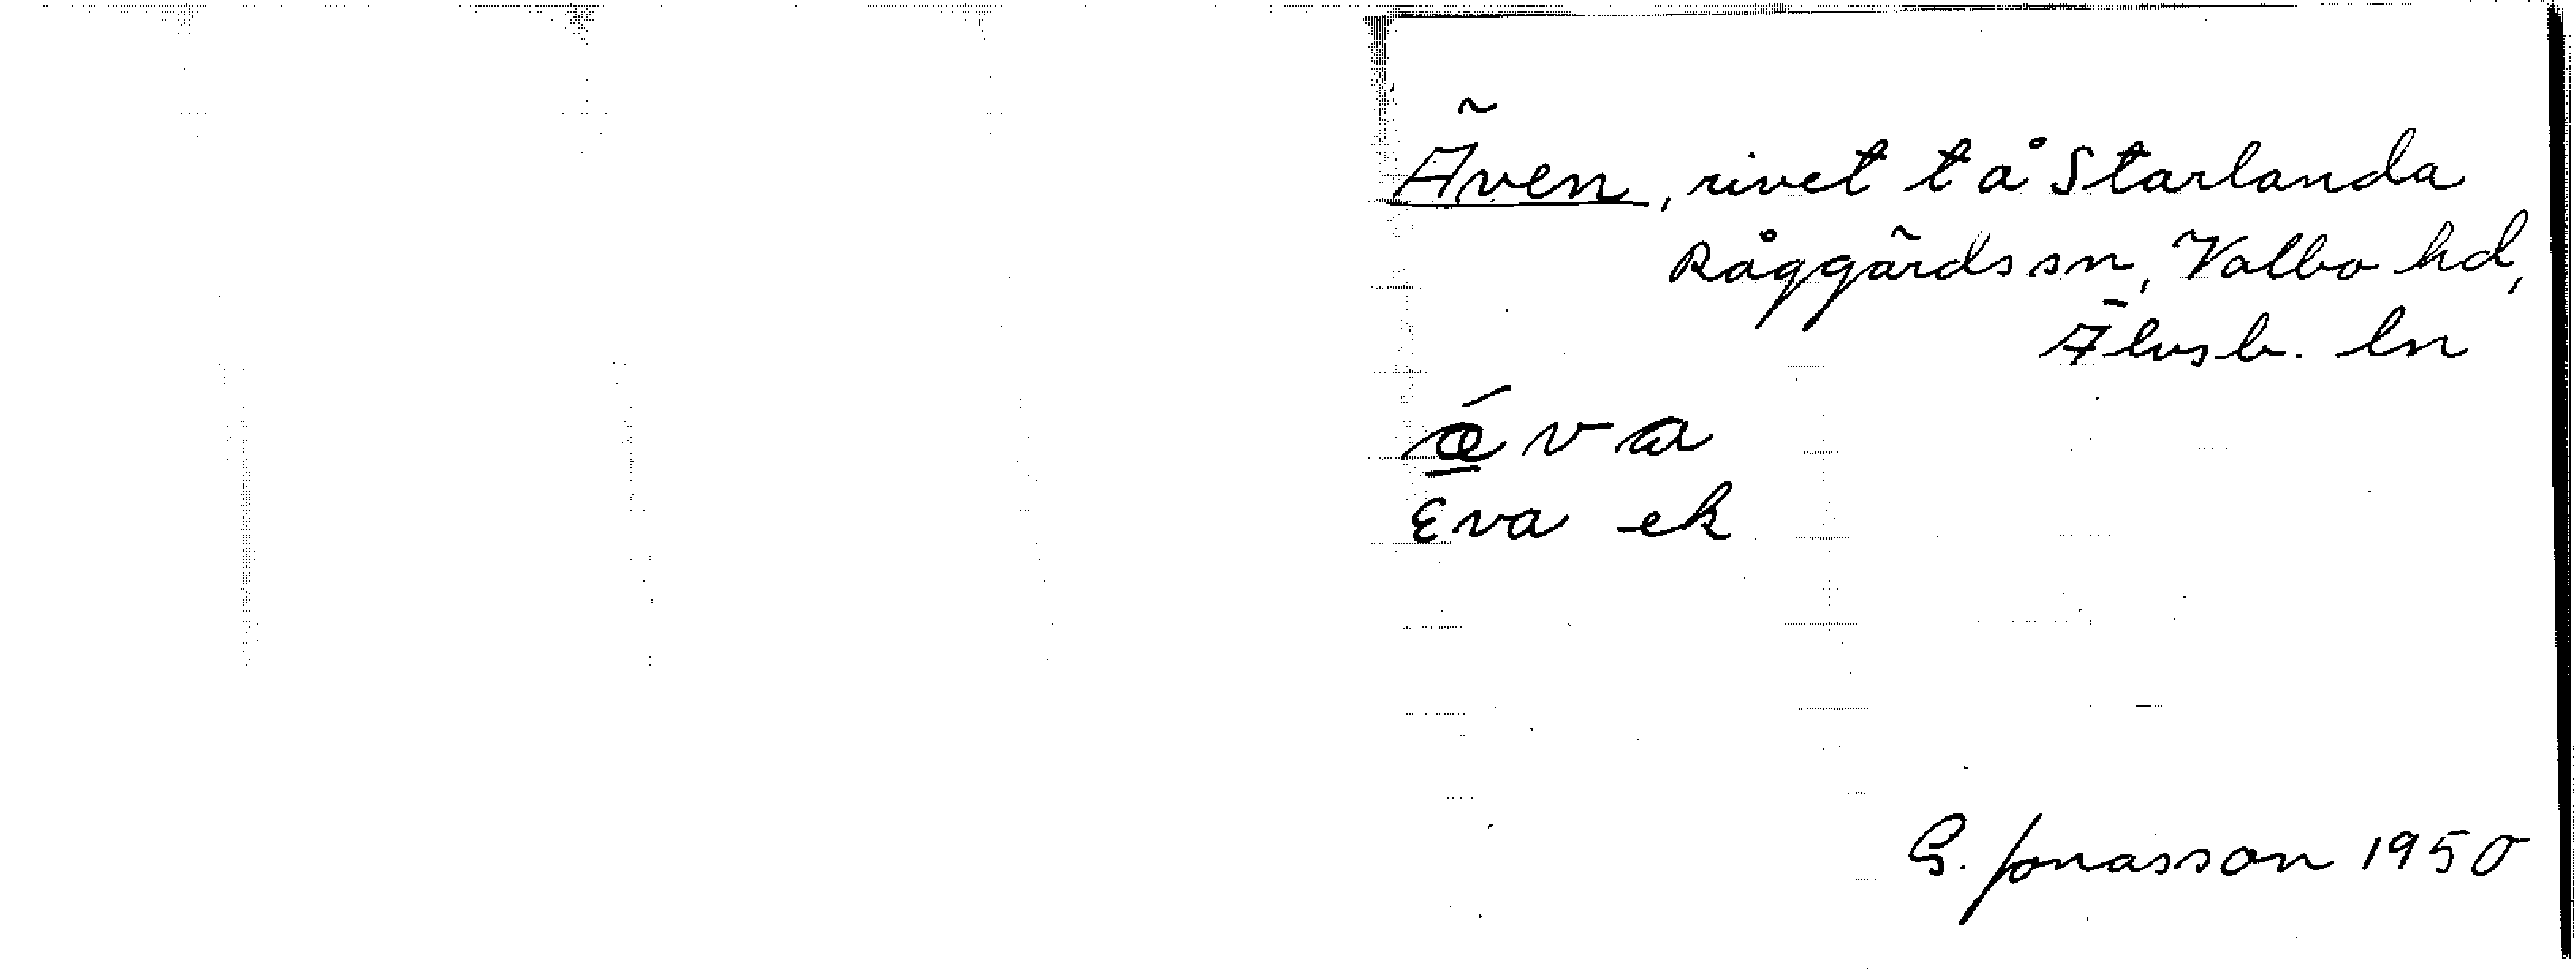 Även, rivet tå Starlanda
Råggärds sn, Valbo hd,
Älvsb. ln
ǽ̲va
Eva ek
G. Jonasson 1950